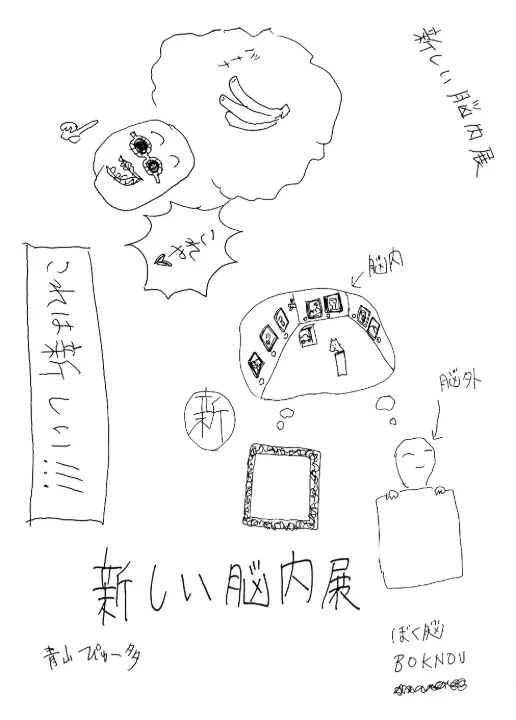 新しい脳内展
バナナ
これや
脳内
これは新しい!!!
脳外
新
新しい脳内展
青山ぴゅータタ
ぼく脳
BOKNOU